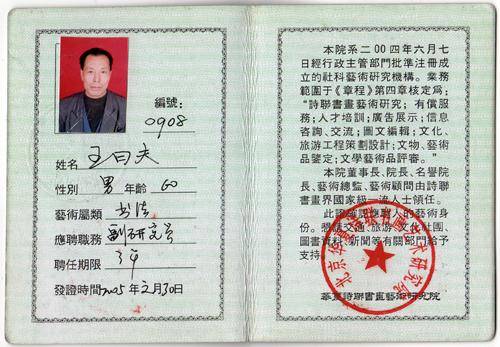 編號:
0908
姓名
性別 男 年齡 60
藝術屬類 书法
應聘職務 副研究员
聘任期限 3年
發證時間 2005年2月30日
本院系二00四年六月七
日經行政主管部門批準注冊成
立的社科藝術研究機構。業務
範圍于《章程》第四章核定爲:
“詩聯書畫藝術研究;有償服
務;人才培訓;廣告展示;信息
咨詢、交流;圖文編輯;文化、
旅游工程策劃設計;文物、藝術
品鑒定;文學藝術品評審。”
本院董事長、院長、名譽院
長、藝術總監、藝術顧問由詩聯
書畫界國家級一流人士領任。
此證確認應聘人的藝術身
份。懇請交通、旅游、文藝社團、
圖書資料、新聞等有關部門給予
支持。
華夏詩聯書畫藝術研究院